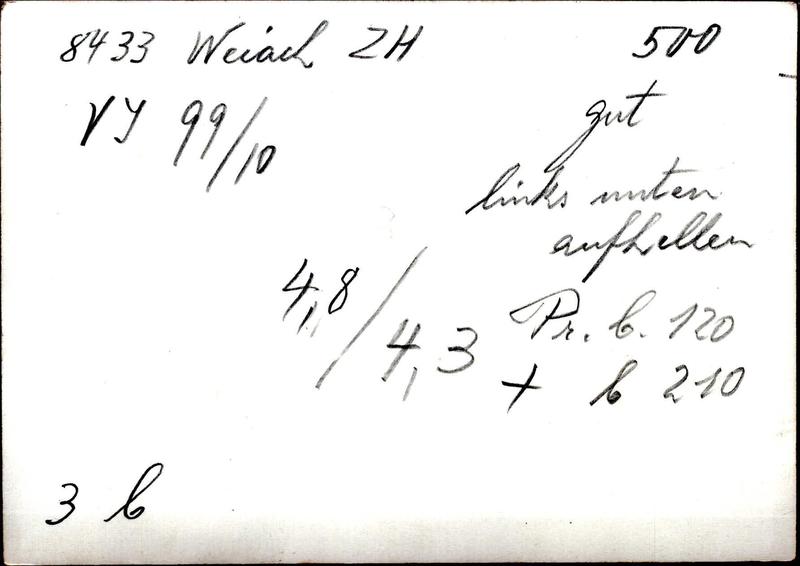 8433 Weiach ZH 500
VY 99/10
gut
links unten
aufhellen
4,8/4,3
Pr. b. 120
+ b 210
3 b